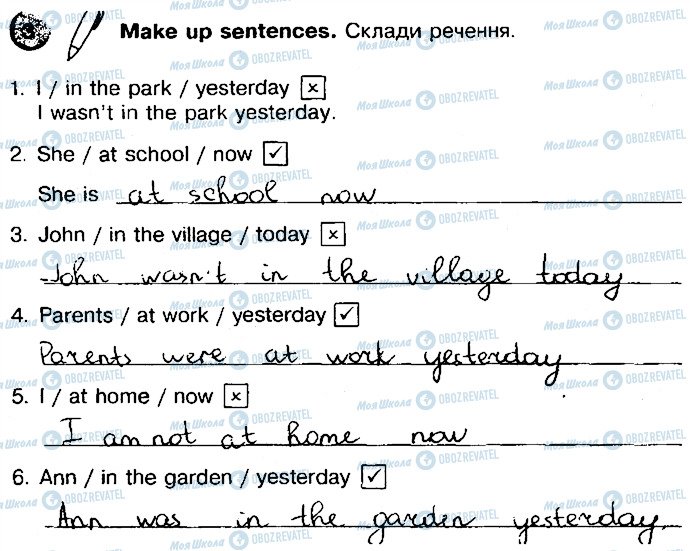 3 Make up sentences. Склади речення.
1. I / in the park / yesterday ☒
I wasn't in the park yesterday.
2. She / at school / now ☑
She is at school now
3. John / in the village / today ☒
John wasn't in the village today
4. Parents / at work / yesterday ☑
Parents were at work yesterday
5. I / at home / now ☒
I am not at home now
6. Ann / in the garden / yesterday ☑
Ann was in the garden yesterday.
МояШкола OBOZREVATEL